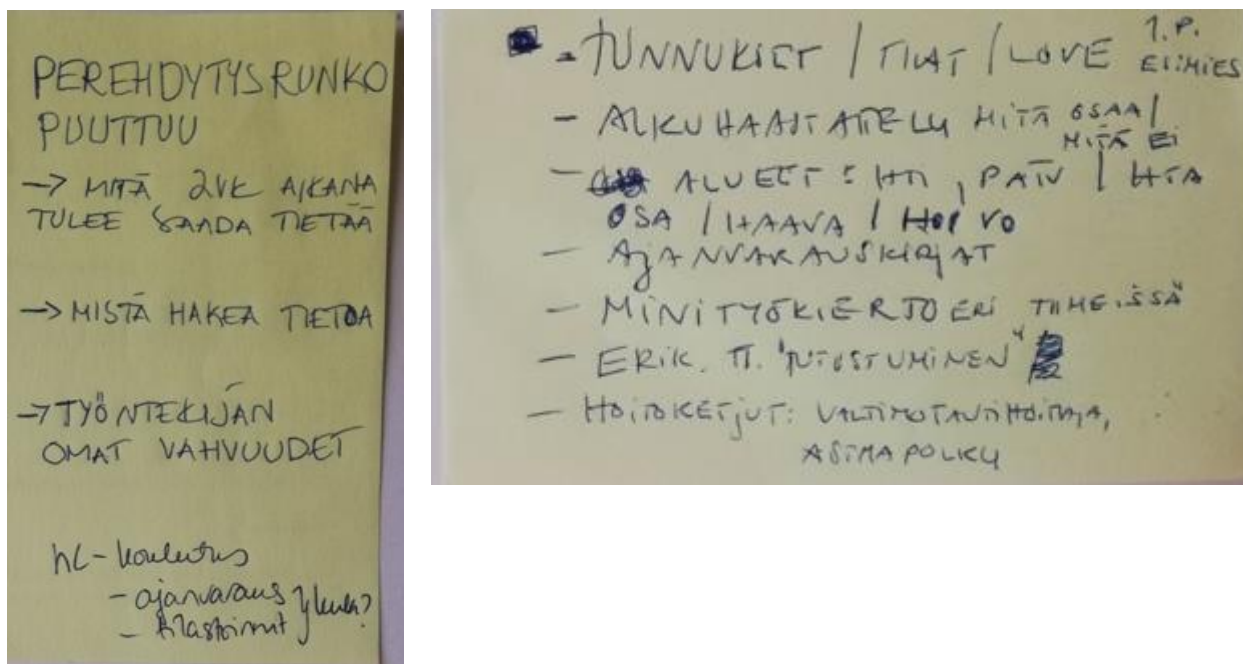 PEREHDYTYSRUNKO
PUUTTUU
-> MITÄ 2VK AIKANA
TULEE SAADA TIETÄÄ
-> MISTÄ HAKEA TIETOA
-> TYÖNTEKIJÄN
OMAT VAHVUUDET
hL-koulutus
- ajanvaraus } kuka?
- tilastoinnit
- TUNNUKSET / TILAT / LOVE 1.P. ESIMIES
- ALKUHAASTATTELU MITÄ OSAA /
MITÄ EI
- ALUEET : HTI, PÄIV / HTA
OSA / HAAVA / HOI VO
- AJANVARAUSKIRJAT
- MINITYÖKIERTO ERI TIIMEISSÄ
- ERIK. TT. "TUTUSTUMINEN"
- HOITOKETJUT: VALTIMOTAUTIHOITAJA,
ASTMAPOLKU